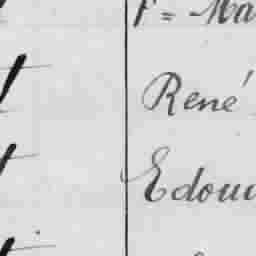 F = Ma
René
Edou